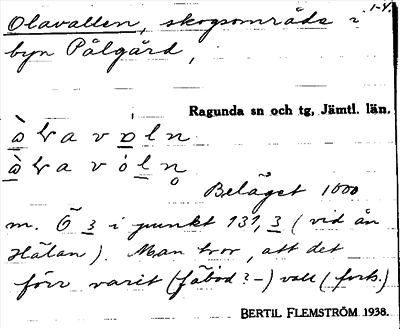 1-4.
Olavallen, skogsområde i
byn Pålgård,
Ragunda sn och tg, Jämtl. län.
Beläget 1000
m. Ö 3 i punkt 131,3 (vid ån
Hålan). Man tror, att det
förr varit (fäbod?-) vall (forts.)
BERTIL FLEMSTRÖM 1938.